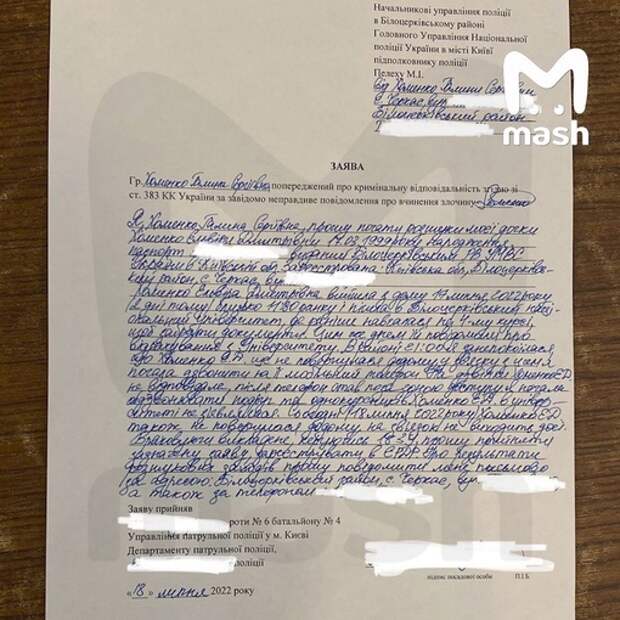 Начальникові управління поліції
в Білоцерківському районі
Головного Управління Національної
поліції України в місті Київі
підполковнику поліції
Пелеху М.І.
від Хоменко Галини Сергіївни
с. Черкас, вул.
Білоцерківський район
mash
ЗАЯВА
Гр. Хоменко Галина Сергіївна попереджений про кримінальну відповідальність згідно зі
ст. 383 КК України за завідомо неправдиве повідомлення про вчинення злочину
Я, Хоменко Галина Сергіївна, прошу почати розшуки моєї дочки
Хоменко Дмитрівни 17.03.1999 року народження
паспорт виданий Білоцерківським РВ УМВС
України в Київській обл. Зареєстрована: Київська обл., Білоцерківсь-
кий район, с. Черкас, вул.
Хоменко Дмитрівна вийшла з дому 17 липня 2022 року
(2 дні тому) близько 11:30 ранку і пішла в Білоцерківський
університет, де раніше навчалася на 4-му курсі,
щоб забрати документи.
з Університету. 21:00
що Хоменко ще не повернулася додому я
почала дзвонити на її мобільний телефон. Хоменко Е.Д.
не відповідала, після телефон став поза зоною доступу я почала
подруг та однокурсників Хоменко Е.Д., в універ-
ситеті не з'являлася. Сьогодні 18 липня 2022 року Хоменко Е.Д.
також не повернулася додому на зв'язок не виходить досі.
Враховуючи викладене, прошу прийняти
зазначену заяву, зареєструвати в ЄРДР. Про результати
розшукових заходів прошу повідомити мене письмово
за адресою: Білоцерківський район, с. Черкас, вул.
а також за телефоном
Заяву прийняв
роти № 6 батальйону № 4
Управління патрульної поліції у м. Києві
Департаменту патрульної поліції,
поліції
підпис посадової особи П.І.Б
«18» липня 2022 року